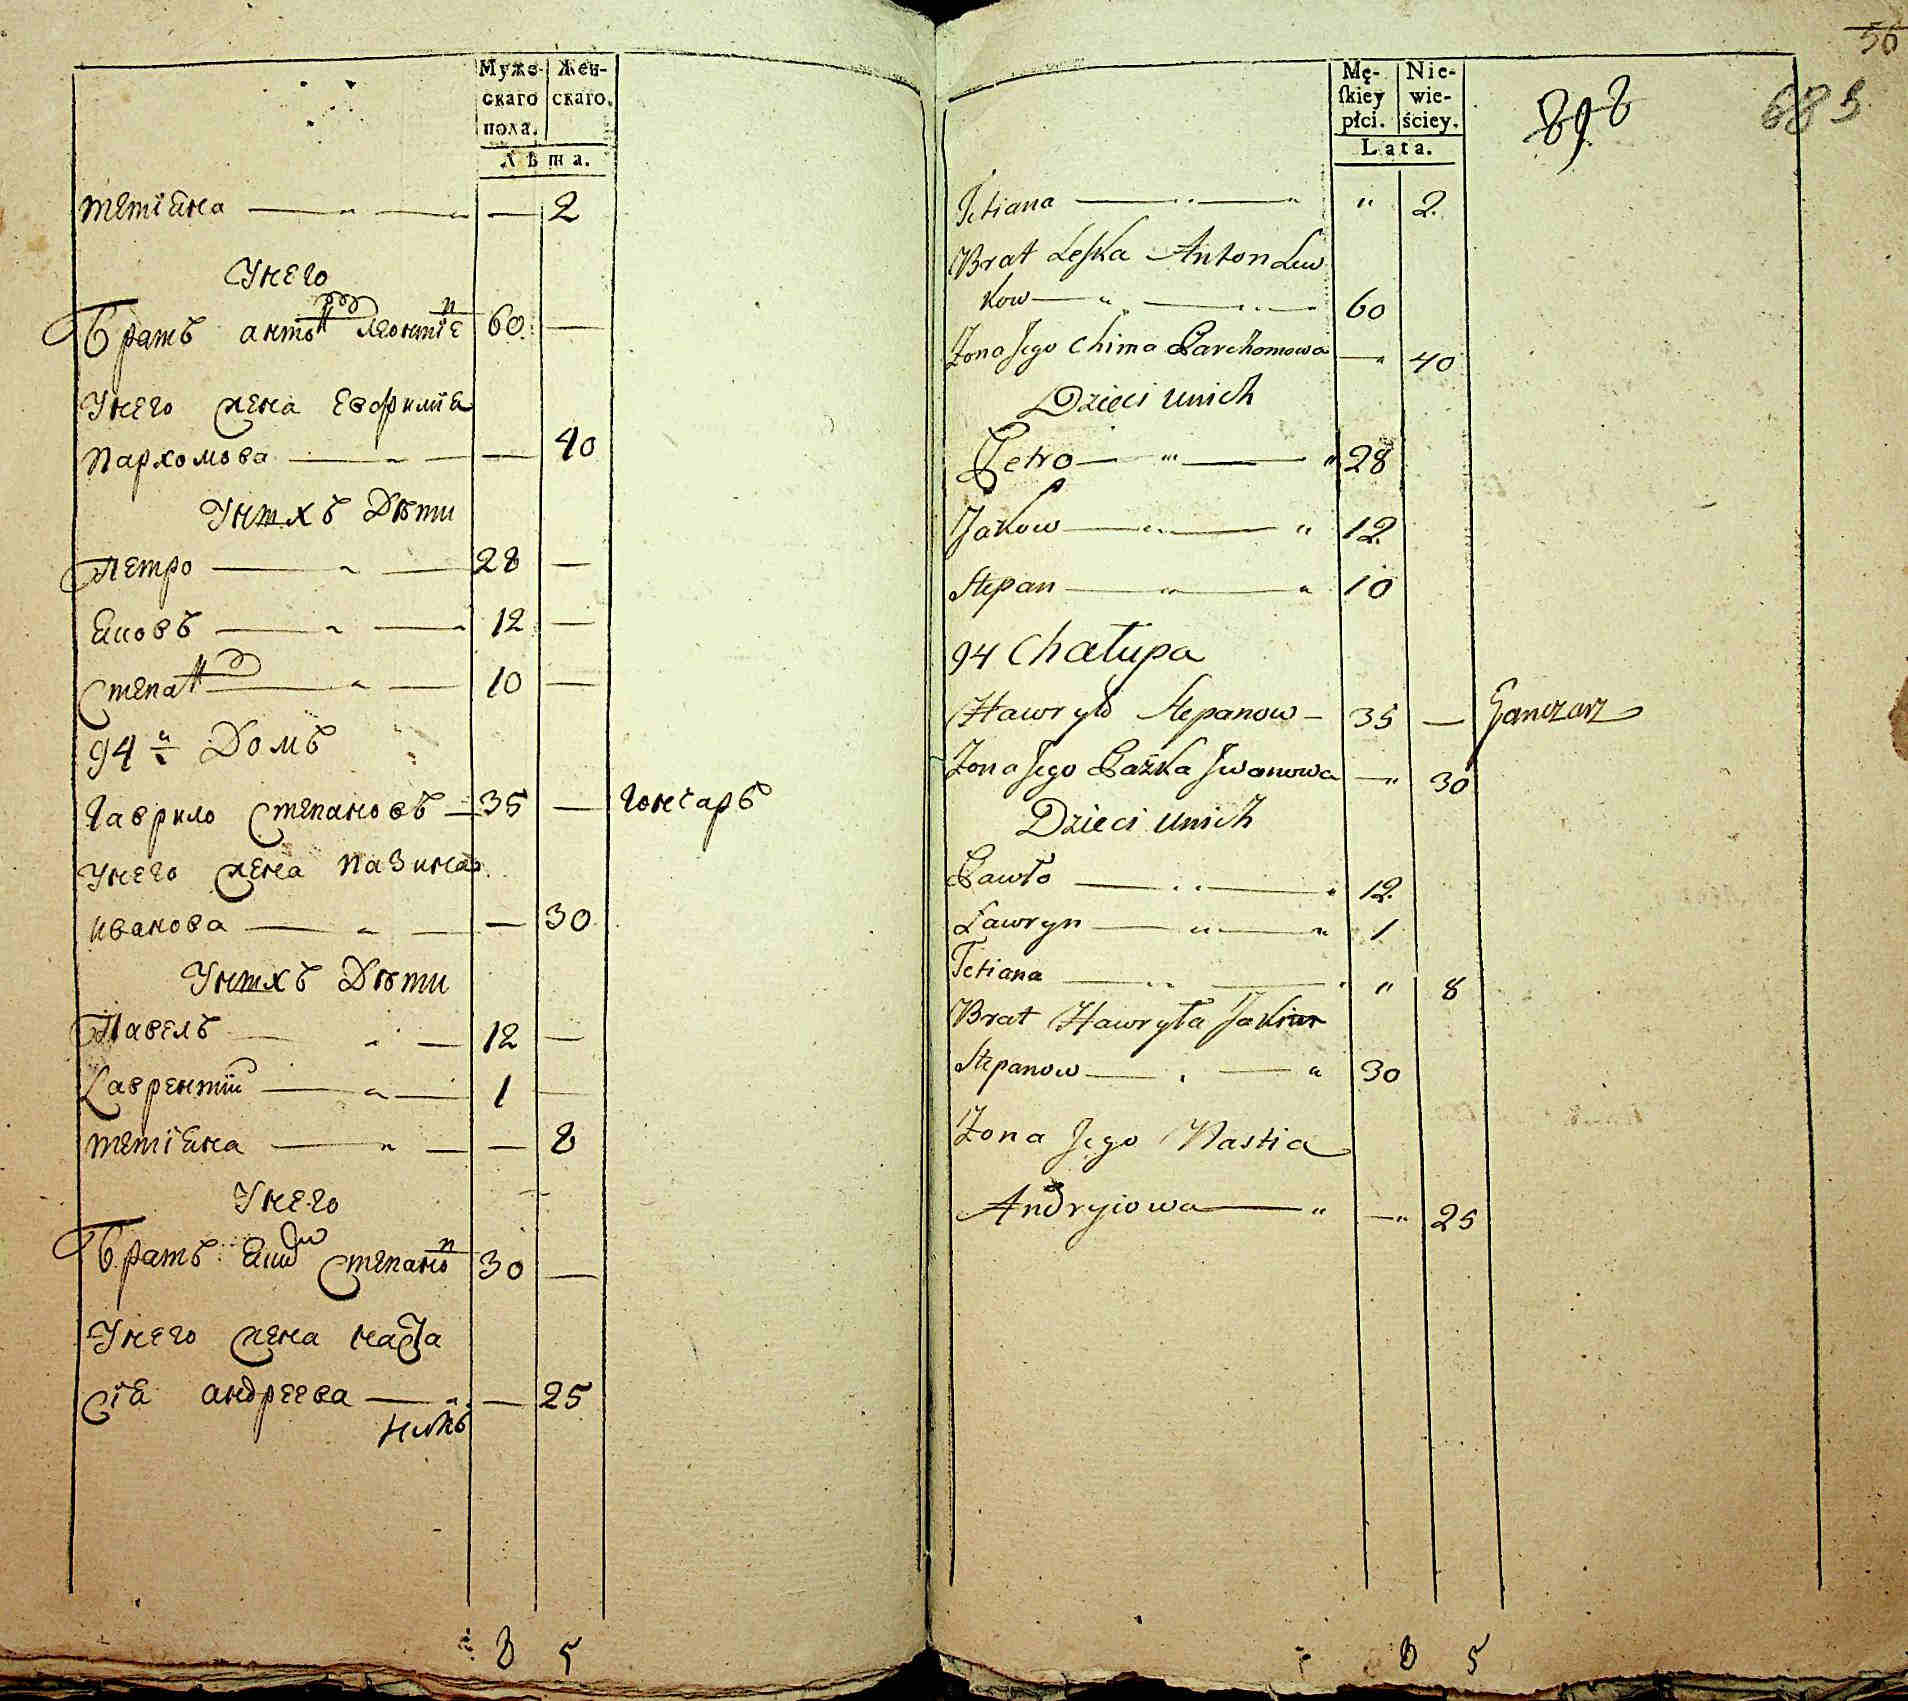 Муже-
скаго
пола.
Жен-
скаго.
Лѣта.
тетіана — 2
Унего
Братъ антон леонтіе 60 —
Унего жена евфиміа
пархомова — 40
Унихъ Дѣти
Петро 28 —
Яковъ 12 —
Степан 10 —
94й Домъ
Гаврило Степановъ 35 — гончаръ
Унего жена пазина
иванова — 30
Унихъ Дѣти
Павелъ 12 —
Лаврентій 1 —
тетіана — 8
Унего
Братъ Яким Степано 30 —
Унего жена наста
сіа андреева — 25
8 5
56
Mę-
ſkiey
płci.
Nie-
wie-
ściey.
Lata.
898
683
Tetiana " 2
Brat Leſka Anton Lew
kow 60
Zona Jego Chima Parchomowa — 40
Dzieci unich
Petro 28
Jakow 12
Stepan 10
94 Chałupa
Hawryło Stepanow 35 — Ganczarz
Zona Jego Pazka Jwanowa — 30
Dzieci unich
Pawło 12
Ławryn 1
Tetiana " 8
Brat Hawryła Jakim
Stepanow 30
Zona Jego Nastia
Andryiowa — 25
8 5